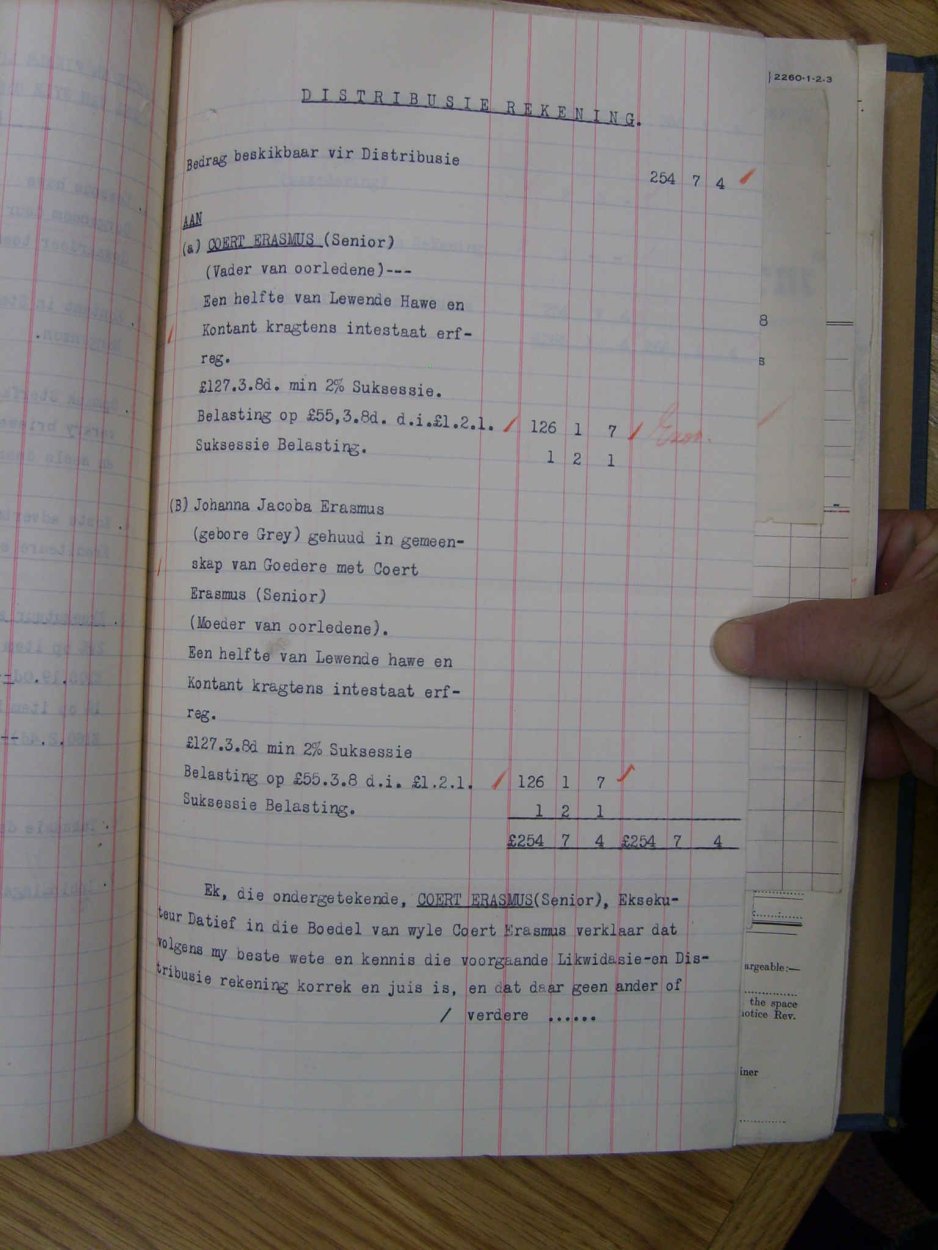 2260-1-2-3
DISTRIBUSIE REKENING.
Bedrag beskikbaar vir Distribusie
254 7 4
AAN
(a) COERT ERASMUS (Senior)
(Vader van oorledene)---
Een helfte van Lewende Hawe en
Kontant kragtens intestaat erf-
reg.
£127.3.8d. min 2% Suksessie.
Belasting op £55,3.8d. d.i.£1.2.1. 126 1 7
Suksessie Belasting. 1 2 1
(B) Johanna Jacoba Erasmus
(gebore Grey) gehuud in gemeen-
skap van Goedere met Coert
Erasmus (Senior)
(Moeder van oorledene).
Een helfte van Lewende hawe en
Kontant kragtens intestaat erf-
reg.
£127.3.8d min 2% Suksessie
Belasting op £55.3.8 d.i. £1.2.1. 126 1 7
Suksessie Belasting. 1 2 1
£254 7 4 £254 7 4
Ek, die ondergetekende, COERT ERASMUS(Senior), Ekseku-
teur Datief in die Boedel van wyle Coert Erasmus verklaar dat
volgens my beste wete en kennis die voorgaande Likwidasie-en Dis-
tribusie rekening korrek en juis is, en dat daar geen ander of
/ verdere ......
8
s
argeable:—
the space
notice Rev.
iner